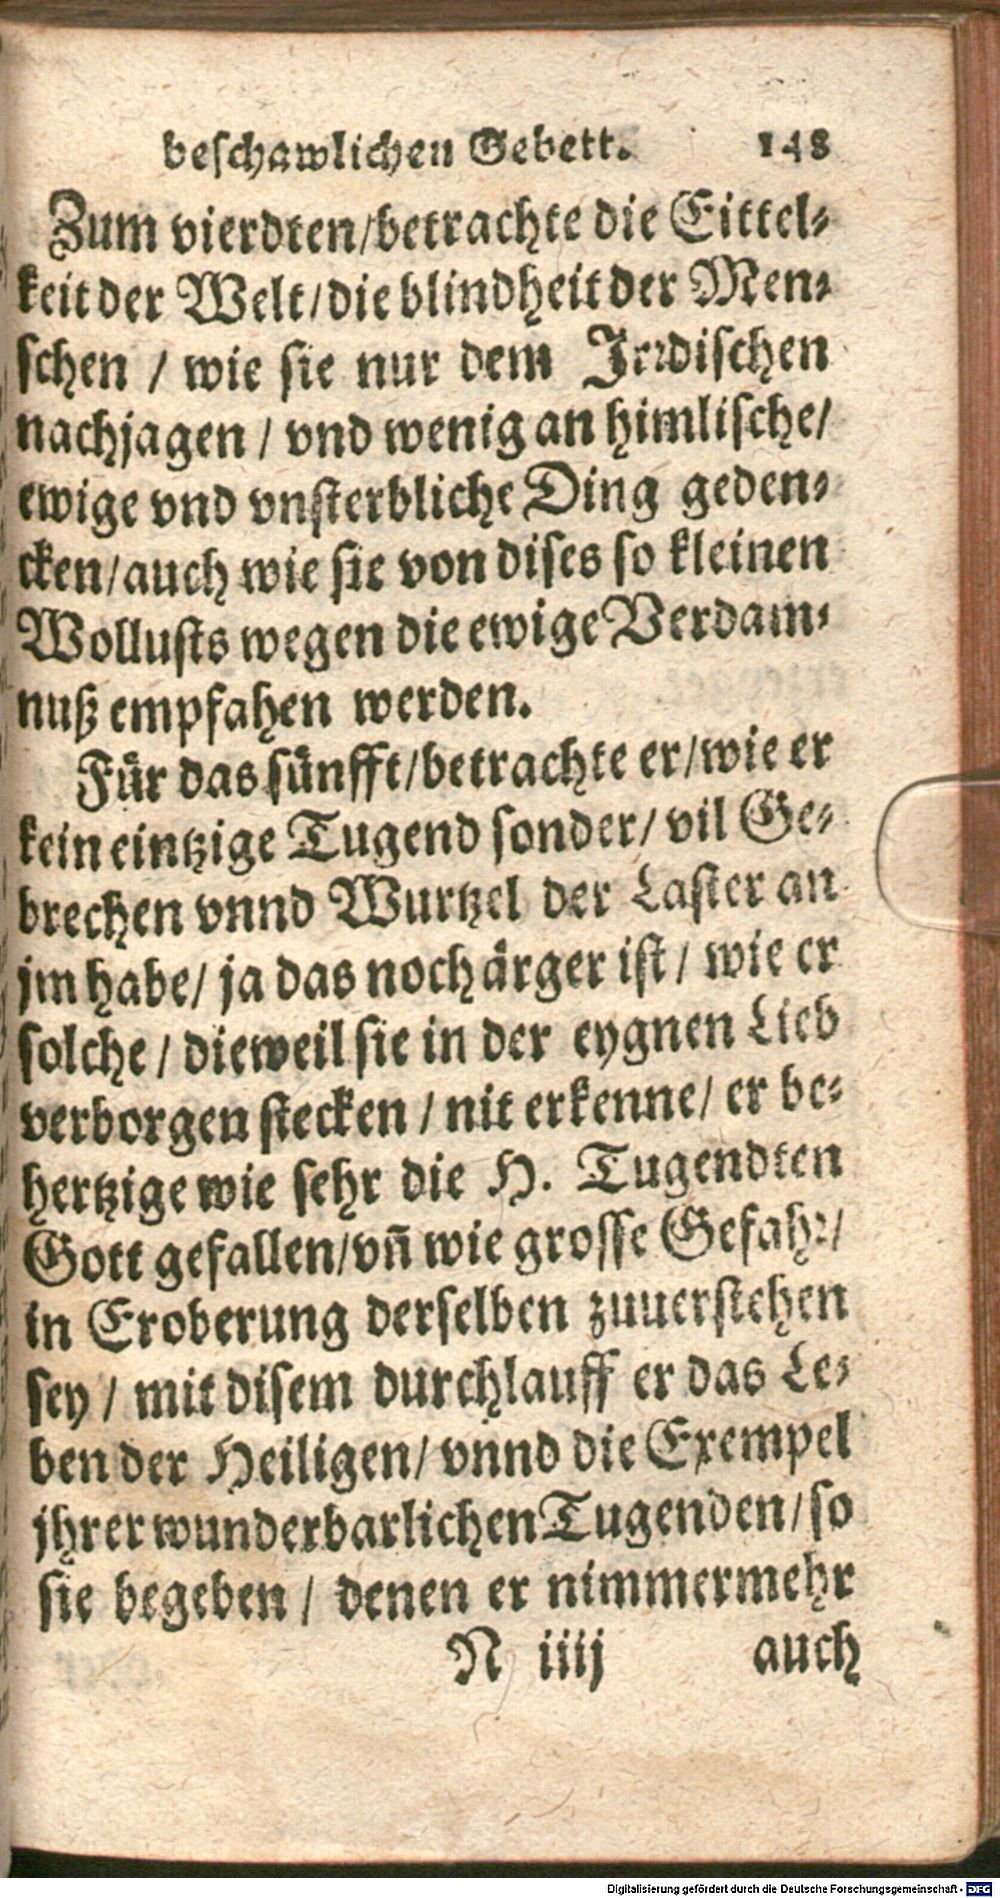 beſchawlichen Gebett. 148
Zum vierdten/betrachte die Eittel⸗
keit der Welt/die blindheit der Men⸗
ſchen / wie ſie nur dem Jrꝛdiſchen
nachjagen / vnd wenig an himliſche/
ewige vnd vnſterbliche Ding geden⸗
cken/auch wie ſie von diſes ſo kleinen
Wolluſts wegen die ewige Verdam⸗
nuß empfahen werden.
Für das fünfft/betrachte er/wie er
kein eintzige Tugend ſonder/ vil Ge⸗
brechen vnnd Wurtzel der Laſter an
jm habe/ ja das noch ärger iſt / wie er
ſolche / dieweil ſie in der eygnen Lieb
verborgen ſtecken / nit erkenne/ er be⸗
hertzige wie ſehr die H. Tugendten
Gott gefallen/vñ wie groſſe Gefahꝛ/
in Eroberung derſelben zuuerſtehen
ſey / mit diſem durchlauff er das Le⸗
ben der Heiligen/ vnnd die Exempel
jhrer wunderbarlichen Tugenden/ſo
ſie begeben / denen er nimmermehr
N iiij auch
Digitalisierung gefördert durch die Deutsche Forschungsgemeinschaft - DFG